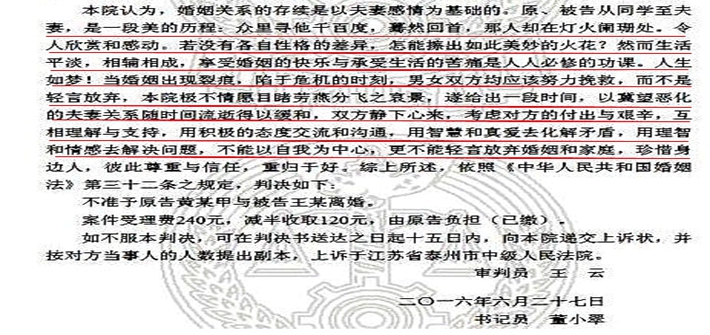 本院认为，婚姻关系的存续是以夫妻感情为基础的。原、被告从同学至夫
妻，是一段美的历程：众里寻他千百度，蓦然回首，那人却在灯火阑珊处。令
人欣赏和感动。若没有各自性格的差异，怎能擦出如此美妙的火花？然而生活
平淡，相辅相成，享受婚姻的快乐与承受生活的苦痛是人人必修的功课。人生
如梦！当婚姻出现裂痕，陷于危机的时刻，男女双方均应该努力挽救，而不是
轻言放弃，本院极不情愿目睹劳燕分飞之哀景，遂给出一段时间，以冀望恶化
的夫妻关系随时间流逝得以缓和，双方静下心来，考虑对方的付出与艰辛，互
相理解与支持，用积极的态度交流和沟通，用智慧和真爱去化解矛盾，用理智
和情感去解决问题，不能以自我为中心，更不能轻言放弃婚姻和家庭，珍惜身
边人，彼此尊重与信任，重归于好。综上所述，依照《中华人民共和国婚姻
法》第三十二条之规定，判决如下：
不准予原告黄某甲与被告王某离婚。
案件受理费240元，减半收取120元，由原告负担（已缴）。
如不服本判决，可在判决书送达之日起十五日内，向本院递交上诉状，并
按对方当事人的人数提出副本，上诉于江苏省泰州市中级人民法院。
审判员 王 云
二〇一六年六月二十七日
书记员 董小翠